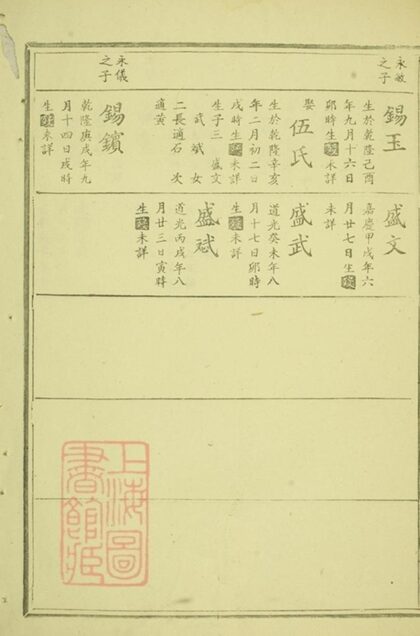 永敏
之子
錫玉
生於乾隆己酉
年九月十六日
卯時生歿未詳
娶
伍氏
生於乾隆辛亥
年二月初二日
戌時生歿未詳
生子三 盛文
武 斌 女
二長適石 次
適黃
永儀
之子
錫鑌
乾隆庚戌年九
月十四日戌時
生歿未詳
盛文
嘉慶甲戌年六
月廿七日生歿
未詳
盛武
道光癸未年八
月十七日卯時
生歿未詳
盛斌
道光丙戌年八
月廿三日寅時
生歿未詳
上海圖
書館藏